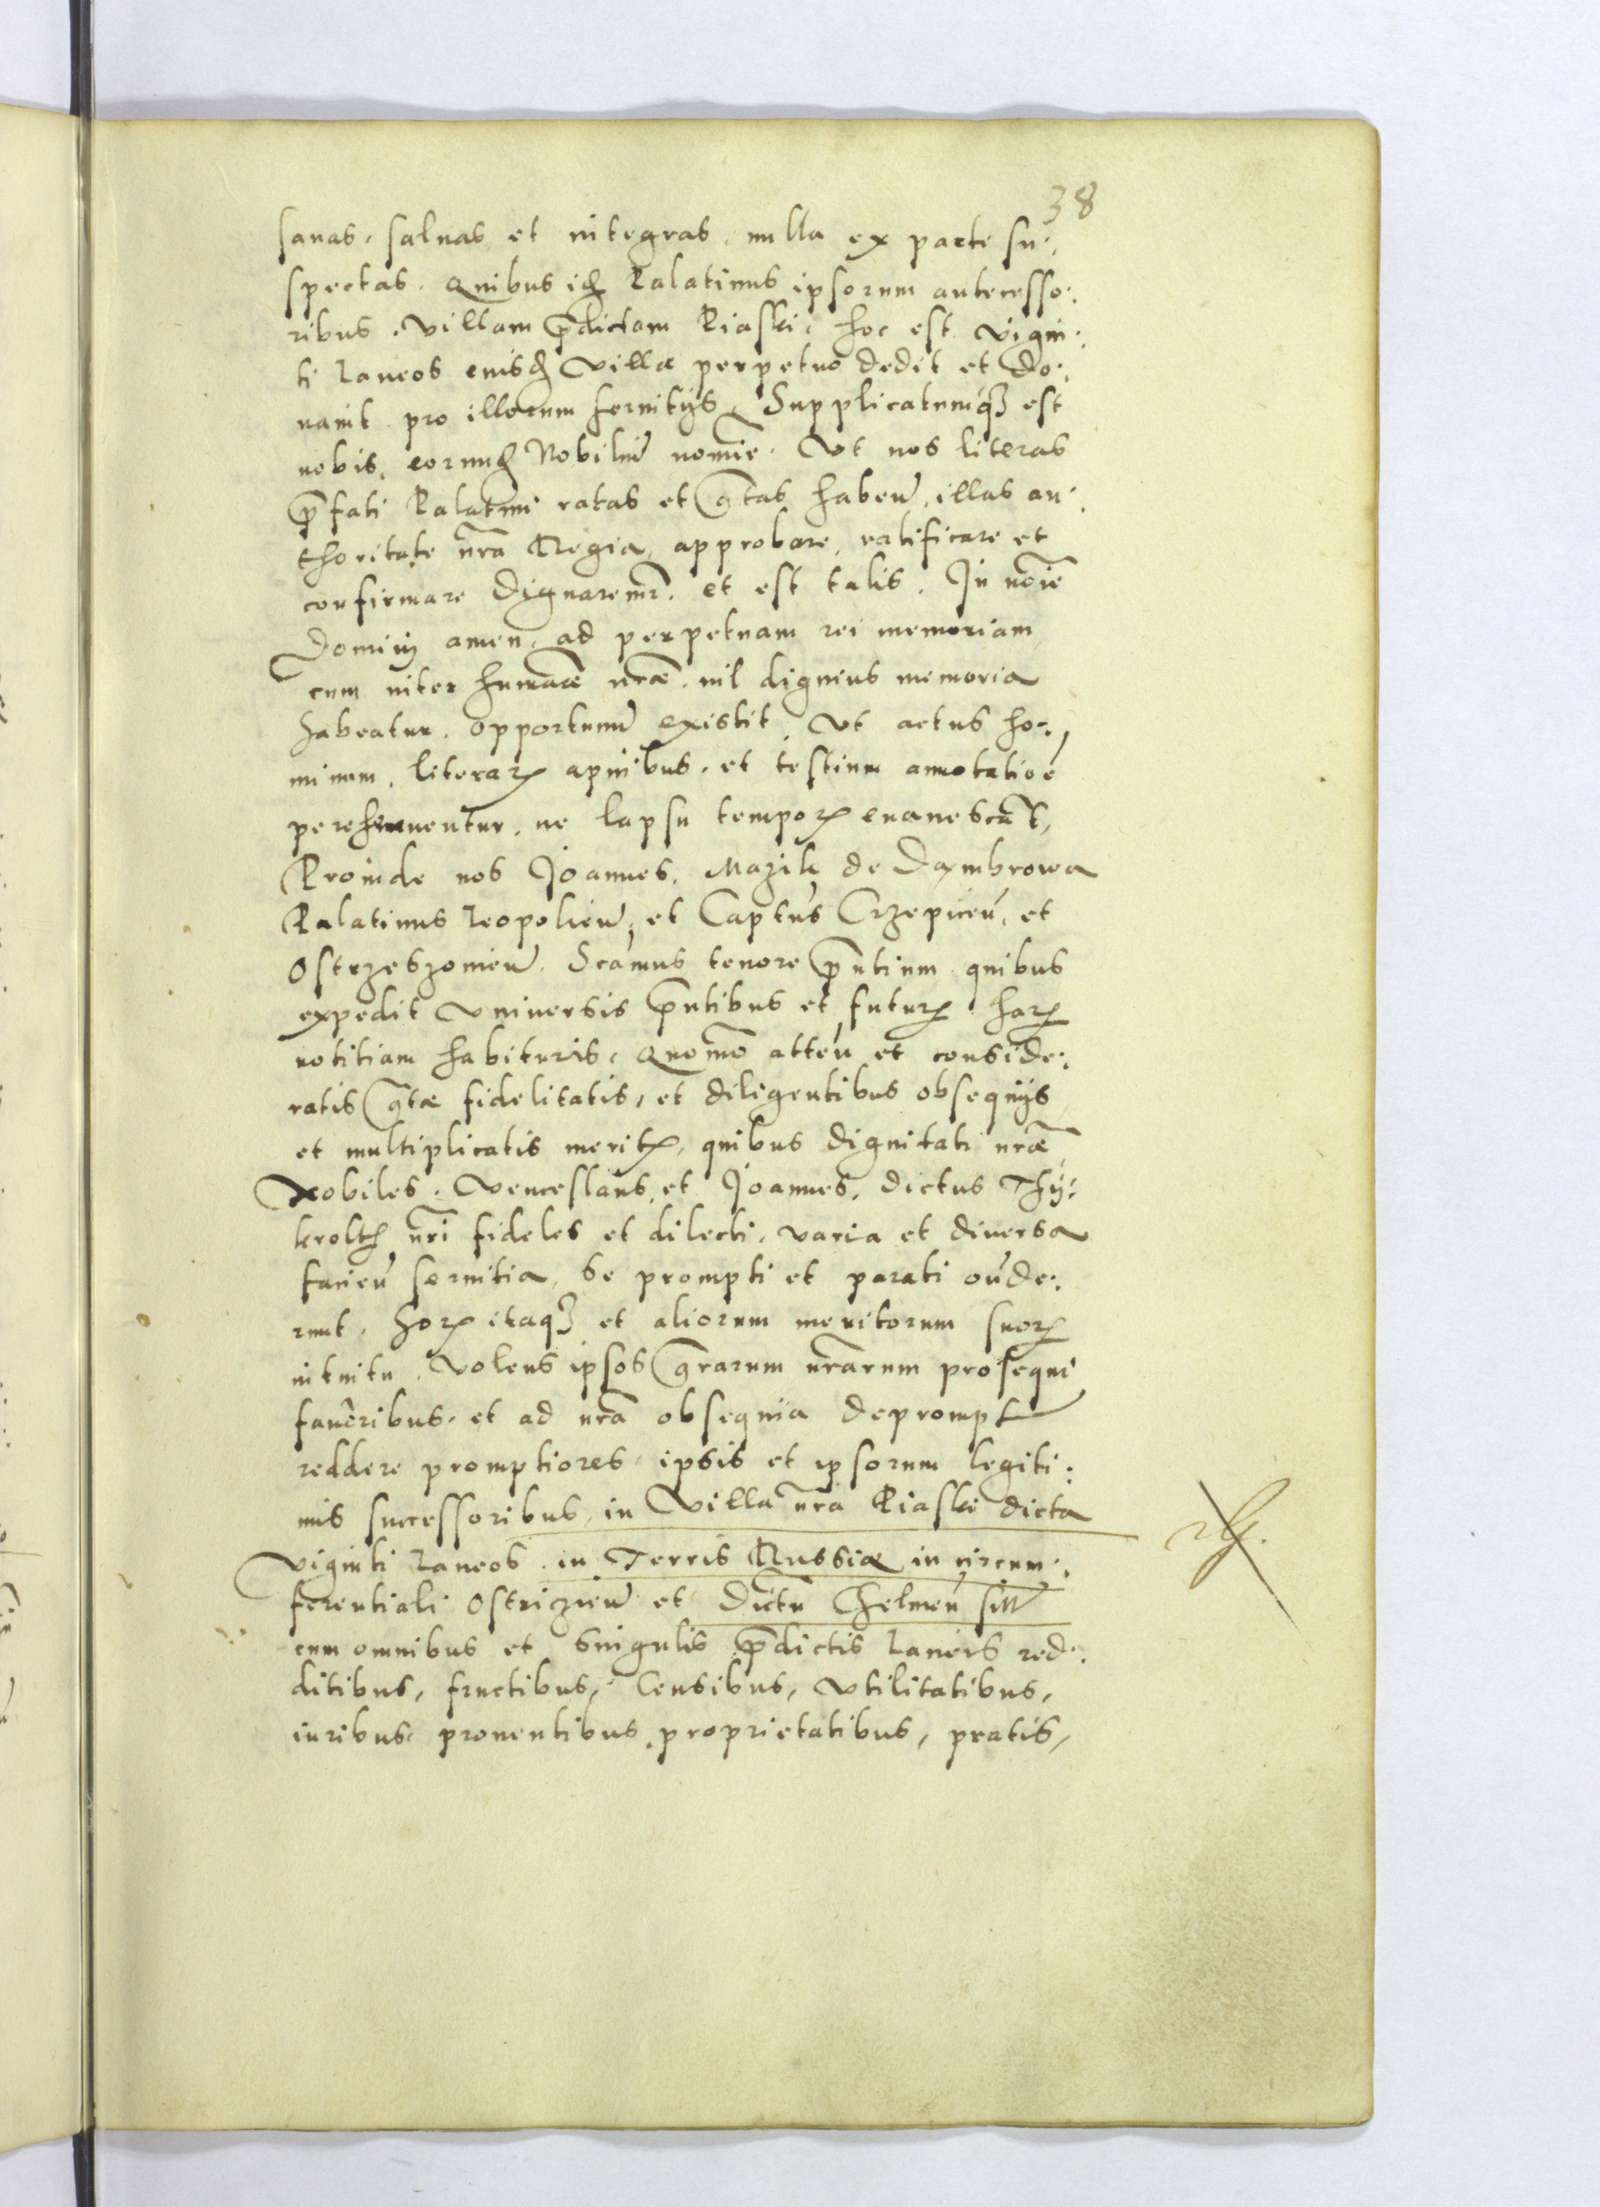 38
sanas, saluas et integras, nulla ex parte su:
spectas. Quibus idē Palatinus ipsorum antecesso:
ribus. villam p̄dictam Piaski, hoc est vigin:
ti Laneos eiusdē villæ perpetuo dedit et do:
nauit pro illorum seruitijs, Supplicatumq₃ est
nobis, eorundē Nobiliū nomīe. Vt nos literas
p̄fati Palatini ratas et gr̄tas habeñ, illas au:
thoritate nr̄a Regia, approbare, ratificare et
confirmare dignaremr̄. et est talis. In noīe
Domini amen, ad perpetuam rei memoriam
cum inter humanæ nr̄æ nil dignius memoria
habeatur. opportunū existit, vt actus ho:
minum, literaꝝ apicibus, et testium annotatioē
perehennentur, ne lapsu tempoꝝ euanescāt,
Proinde nos Joannes, Mazik de Daxmbrowa
Palatinus Leopolień, et Captūs Crzepiceń, et
Ostrzeszomień. Scāmus tenore p̄ntium quibus
expedit vniuersis p̄ntibus et futuꝝ haꝝ
notitiam habituris, Quomō atteń et conside:
ratis gr̄tæ fidelitatis, et diligentibus obsequijs
et multiplicatis meritꝝ, quibus dignitati nr̄æ
Nobiles. Venceslaus, et Joannes, dictus Thÿ:
krolꝝ nr̄i fideles et dilecti, varia et diuersa
facień seruitia, se prompti et parati ōnde:
runt. hoꝝ itaq₃ et aliorum meritorum suoꝝ
intuitu, volens ipsos gr̄arum nr̄arum prosequi
fauoribus, et ad nr̄a obsequia deprompt
reddere promptiores, ipsis et ipsorum legiti:
mis successoribus, in villa nr̄a Piaski dicta
viginti Laneos, in Terris Russiæ in circum:
ferentiali Ostriczień et dictū Chelmeń sitt
cum omnibus et singulis p̄dictis Laneis red:
ditibus, fructibus, Censibus, vtilitatibus,
iuribus, prouentibus, proprietatibus, pratis,